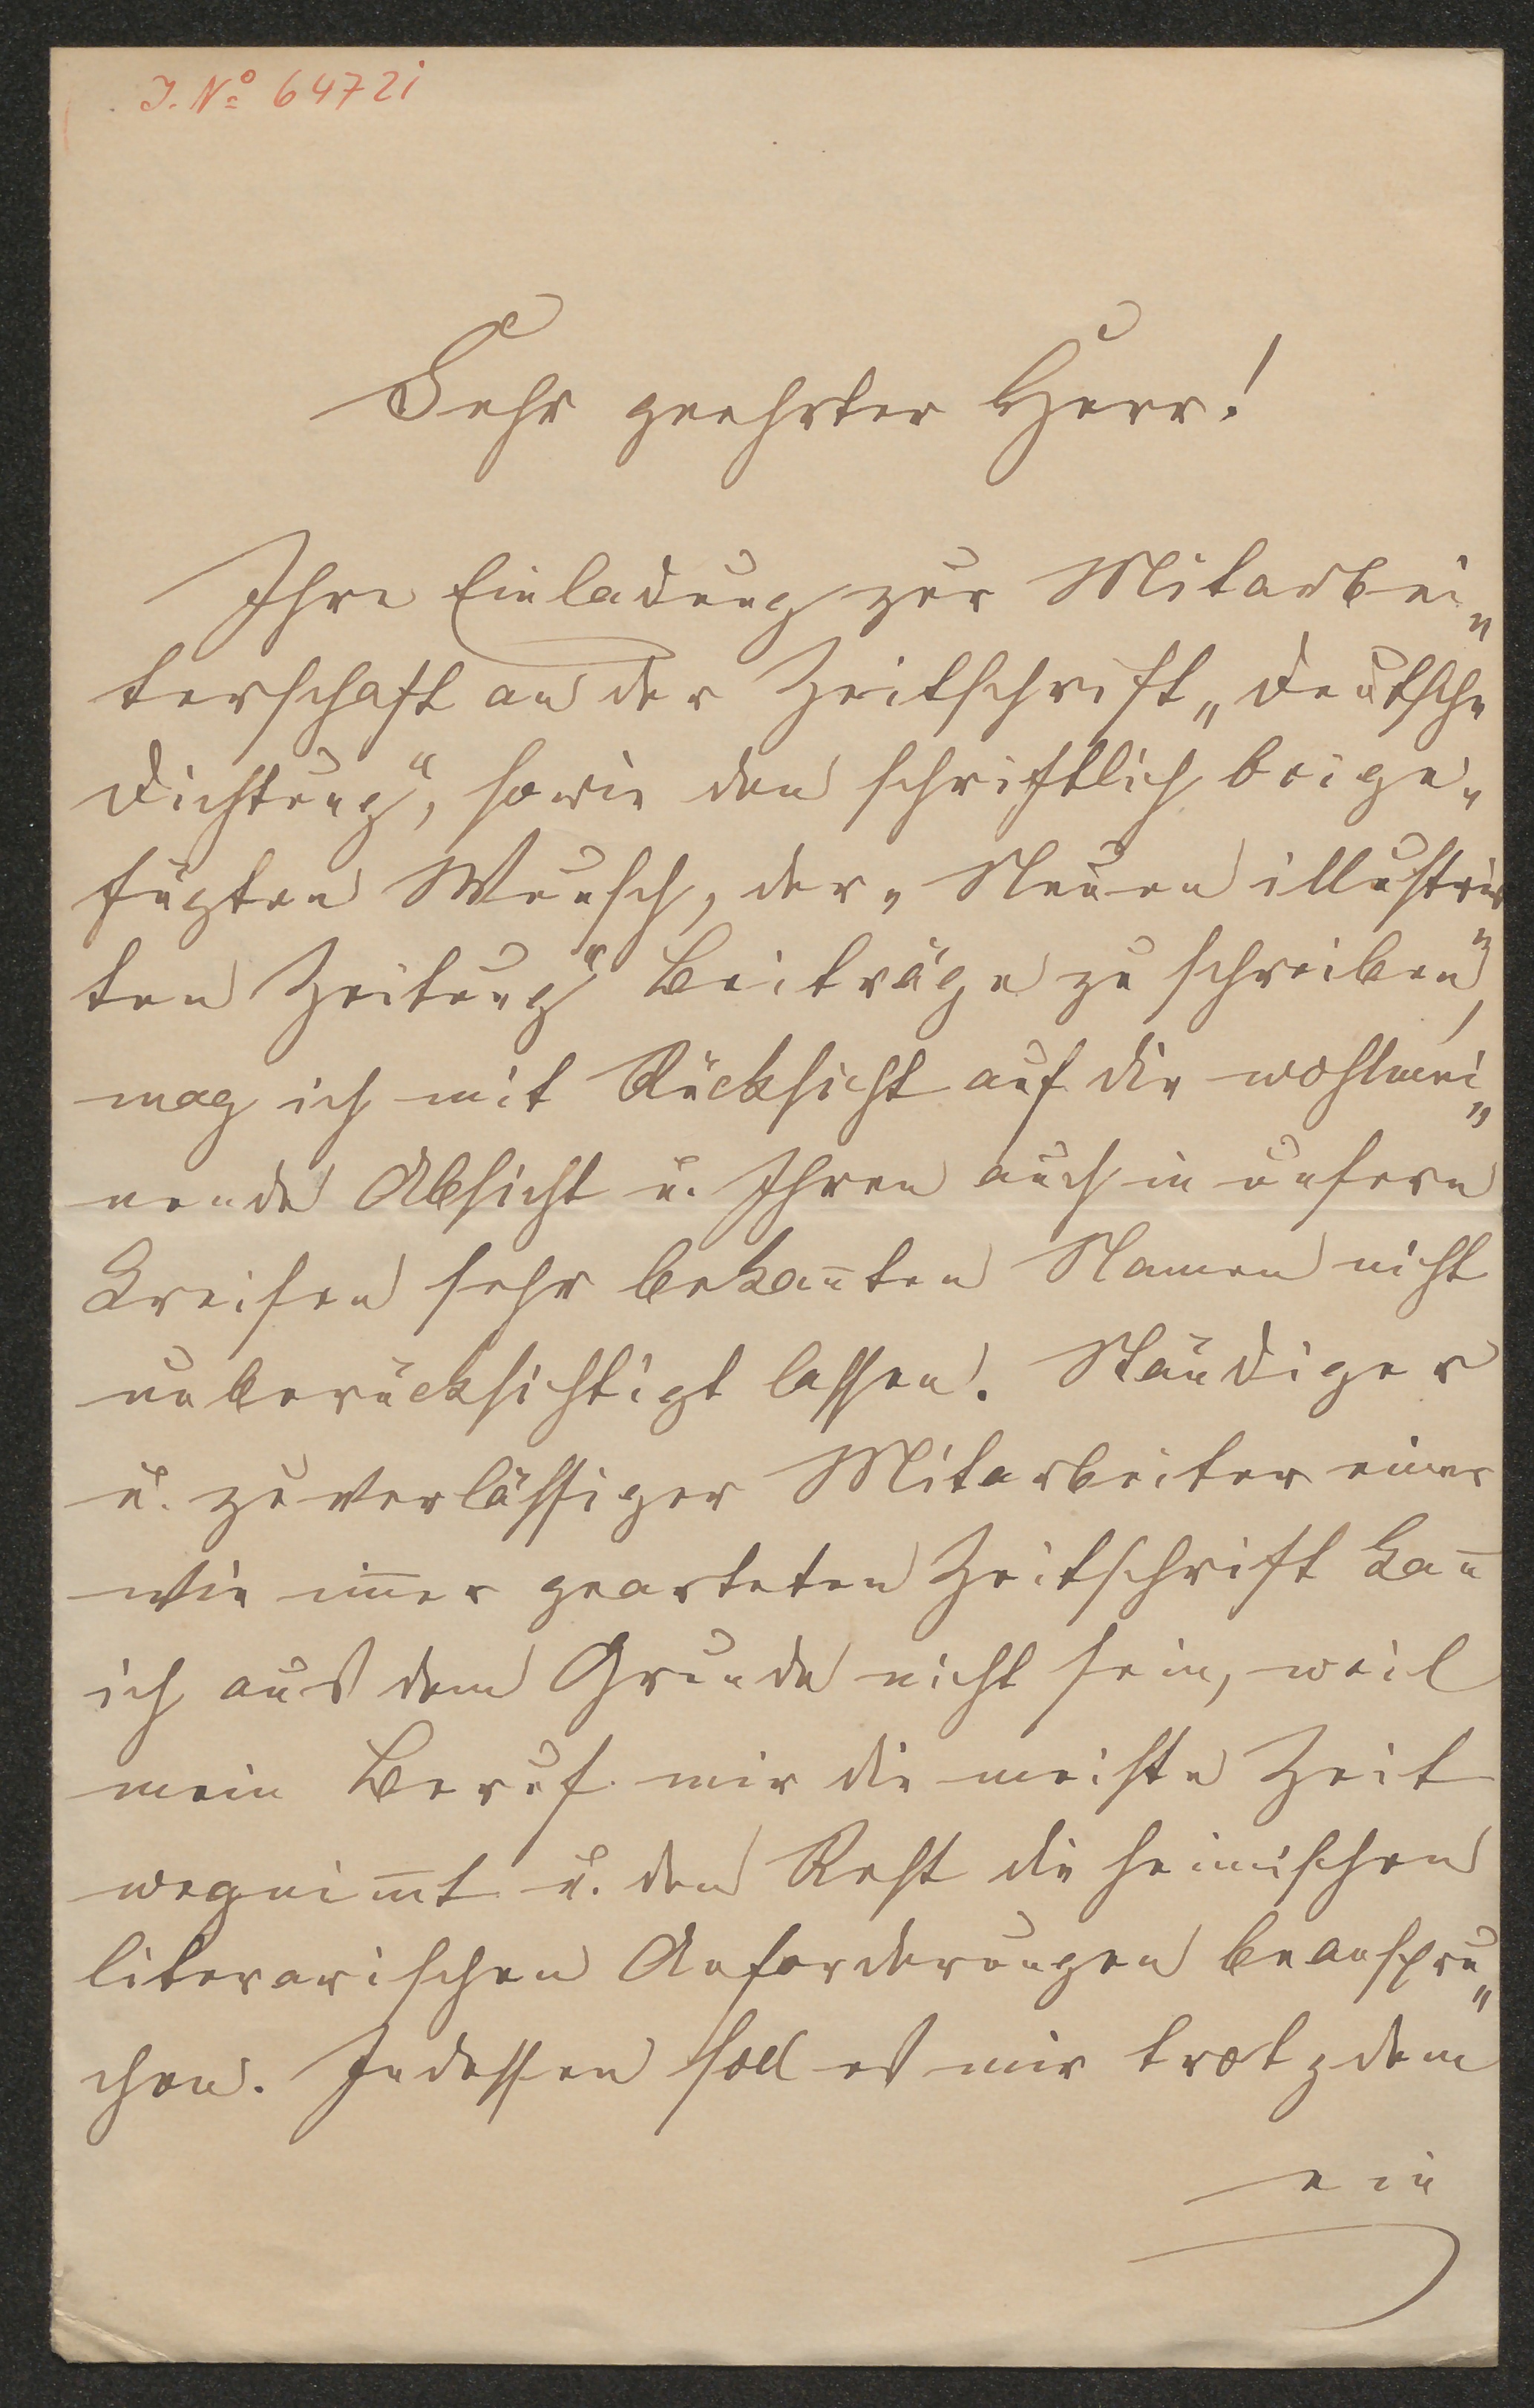 J. No 64721
Sehr geehrter Herr!
Ihre Einladung zur Mitarbei„
terschaft an der Zeitschrift „Deutsche
Dichtung“, sowie den schriftlich beige„
fügten Wunsch, der „Neuen illustrir
ten Zeitung“ Beiträge zu schreiben,
mag ich mit Rücksicht auf die wohlmei„
nende Absicht u. Ihren auch in unsern
Kreisen sehr bekan̄ten Namen nicht
unberücksichtigt lassen. Ständiger
u. zuverlässiger Mitarbeiter einer
wie im̄er gearteten Zeitschrift kan̄
ich aus dem Grunde nicht sein, weil
mein Beruf mir die meiste Zeit
wegnim̄t u. den Rest die heimischen
literarischen Anforderungen beanspru„
chen. Indessen soll es mir trotzdem
ein